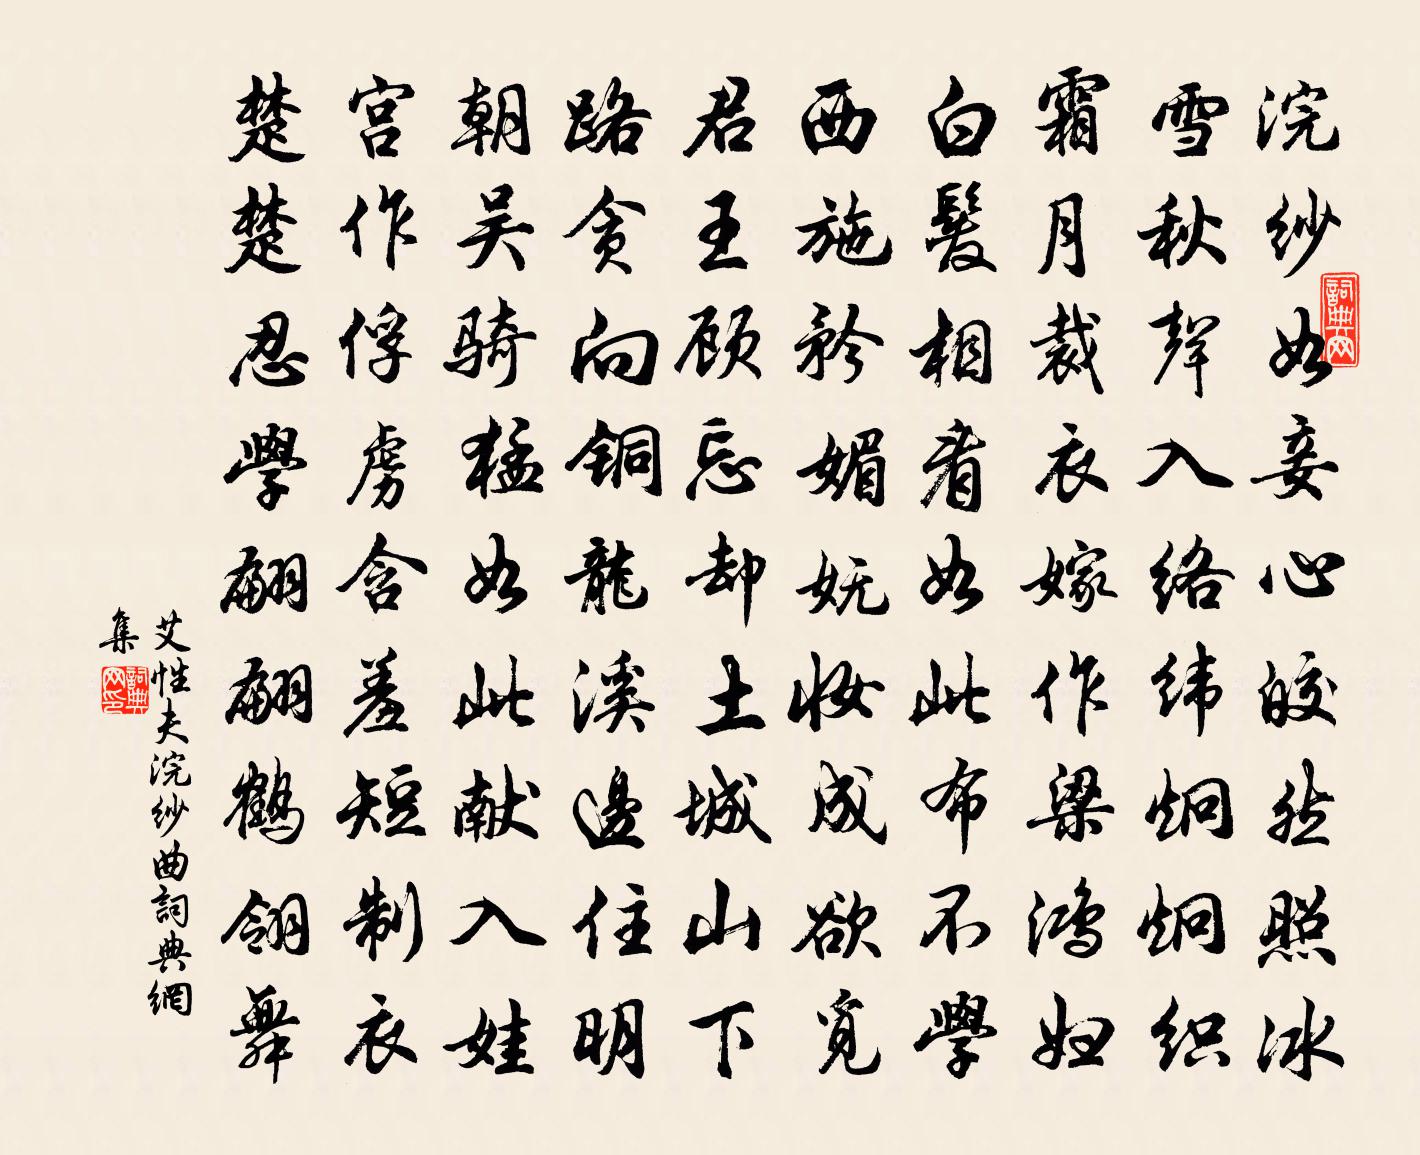 浣纱如妾心皎然照冰
雪秋聲入络纬炯炯织
霜月裁衣嫁作梁鸿妇
白髮相看如此布不學
西施矜媚妩妆成欲覓
君王顾忘却土城山下
路贪向铜龍溪邊住明
朝吴骑猛如此献入娃
宫作俘虏含羞短制衣
楚楚忍學翩翩鹤翎舞
艾性夫浣纱曲詞典網
集
詞典网
詞典网印